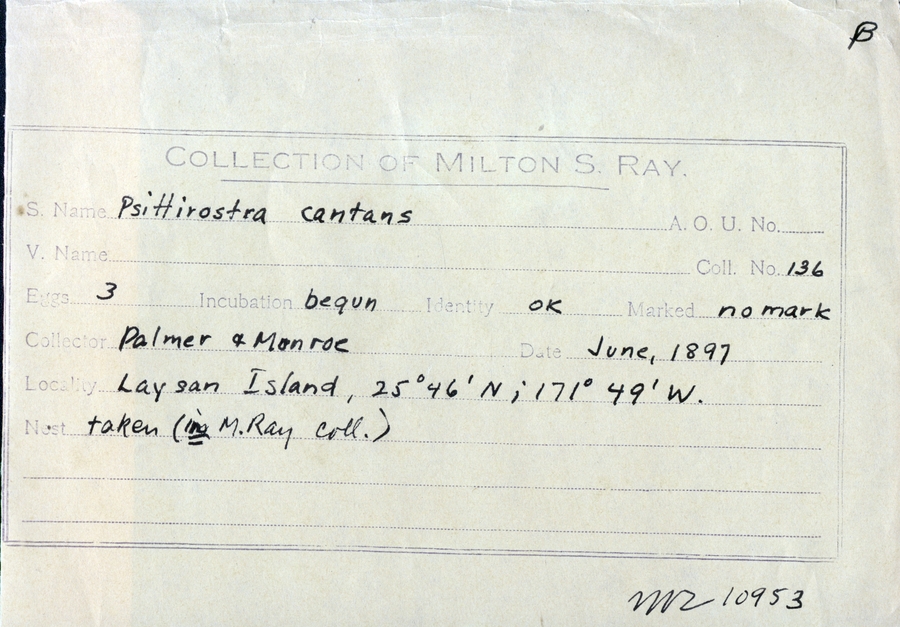 COLLECTION OF MILTON S. RAY.
S. Name Psittirostra cantans A. O. U. No.
V. Name Coll. No. 136
Eggs 3 Incubation begun Identity ok Marked no mark
Collector Palmer & Monroe Date June, 1897
Locality Laysan Island, 25°46' N; 171° 49' W.
Nest taken (in M.Ray coll.)
10953